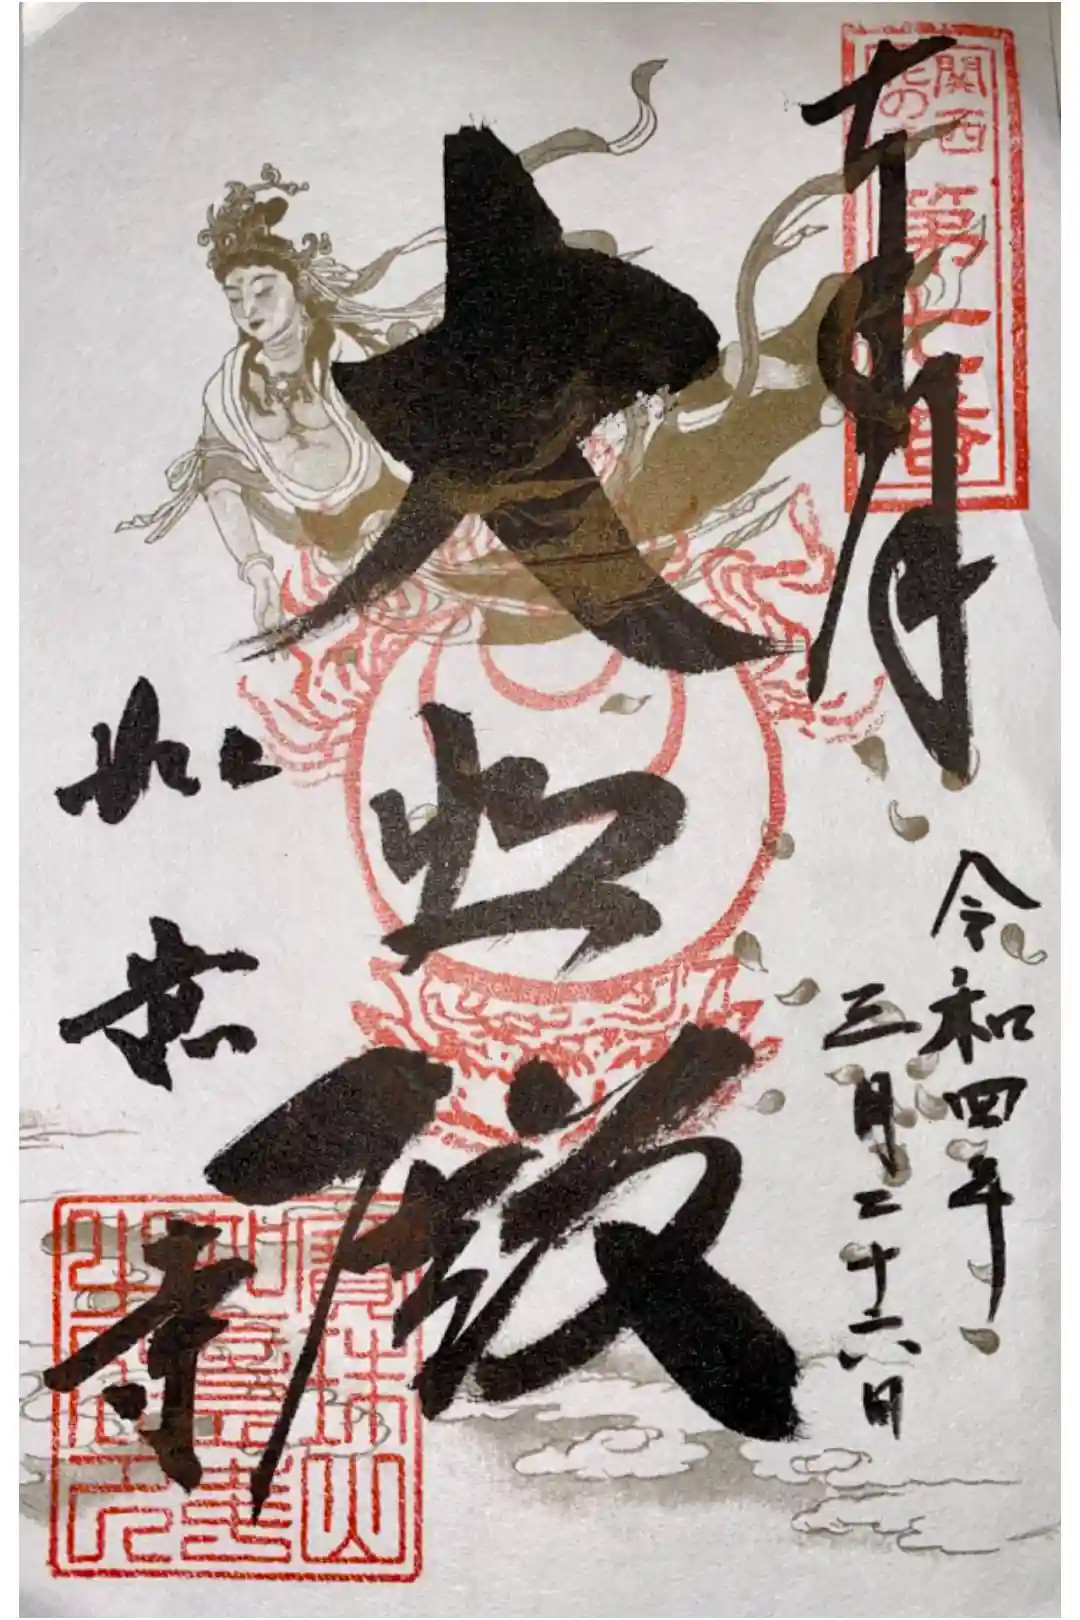 奉拝
関西
花の
第七番
令和四年
三月二十六日
大悲殿
如意寺